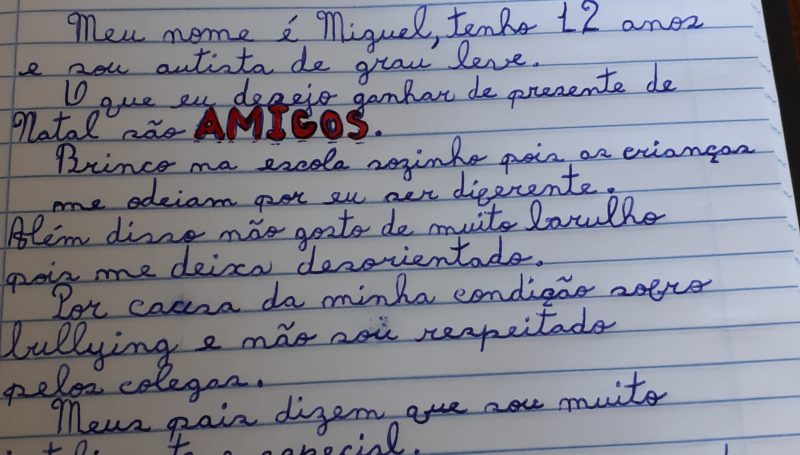 Meu nome é Miguel, tenho 12 anos
e sou autista de grau leve.
O que eu desejo ganhar de presente de
Natal são AMIGOS.
Brinco na escola sozinho pois as crianças
me odeiam por eu ser diferente.
Além disso não gosto de muito barulho
pois me deixa desorientado.
Por causa da minha condição sofro
bullying e não sou respeitado
pelos colegas.
Meus pais dizem que sou muito
especial.